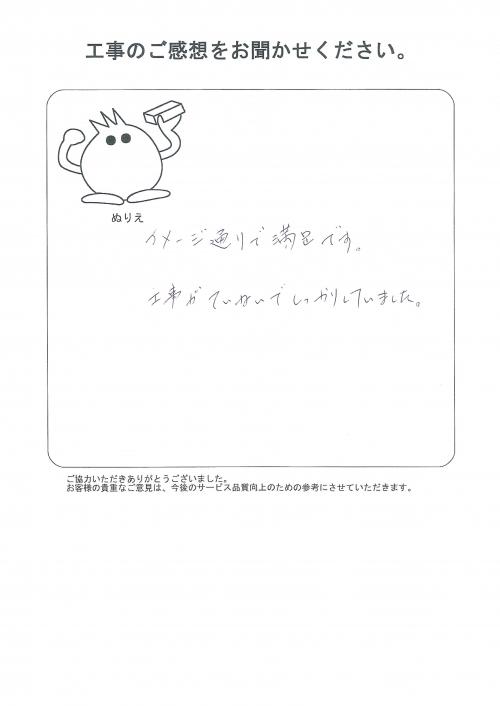 工事のご感想をお聞かせください。
ぬりえ
イメージ通りで満足です。
工事がていねいでしっかりしていました。
ご協力いただきありがとうございました。
お客様の貴重なご意見は、今後のサービス品質向上のための参考にさせていただきます。